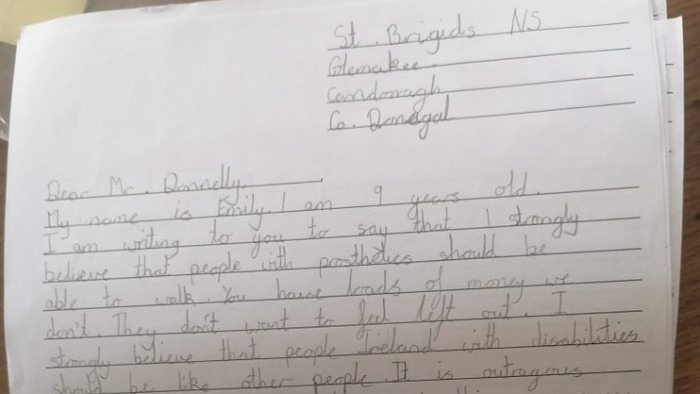 St. Brigids NS
Glemakee.
Carndonagh
Co. Donegal
Dear Mr. Donnelly.
My name is Emily. I am 9 years old.
I am writing to you to say that I strongly
believe that people with prosthetics should be
able to walk. You have loads of money we
don't. They don't want to feel left out. I
strongly believe that people Ireland with disabilities
should be like other people. It is outragous